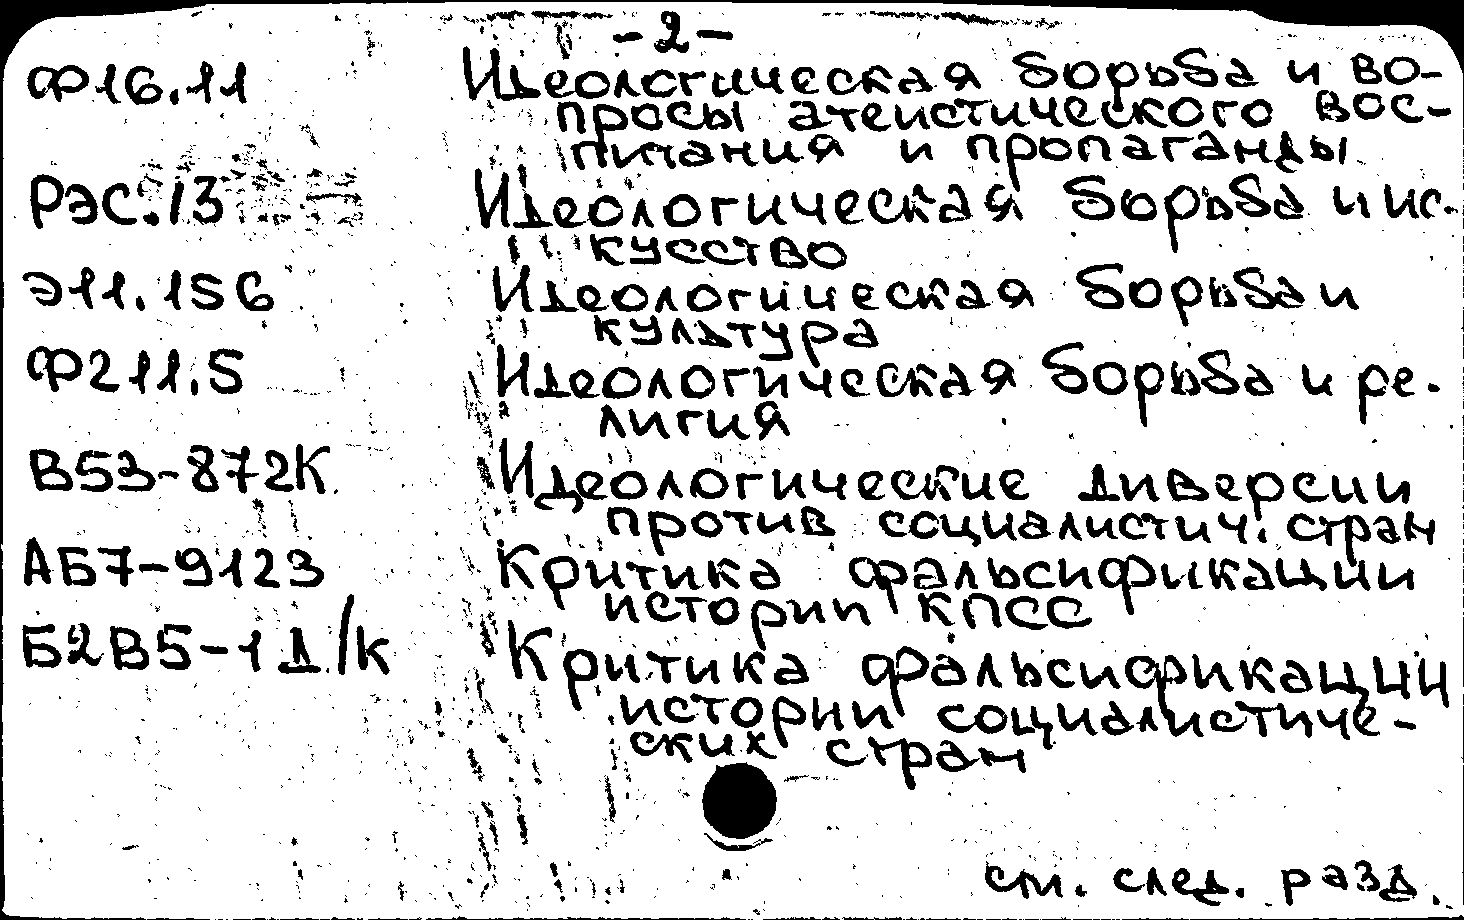 -2-
Ф16.11 Идеологическая борьба и во-
просы атеистического вос-
питания и пропаганды
Рэс.13 Идеологическая борьба и ис-
кусство
Э11.156 Идеологическая борьба и
культура
Ф211.5 Идеологическая борьба и ре-
лигия
В53-872К Идеологические диверсии
против социалистич. стран
АБ7-9123 Критика фальсификации
истории КПСС
Б2В5-1Д/к Критика фальсификации
истории социалистиче-
ских стран
см. след. разд.